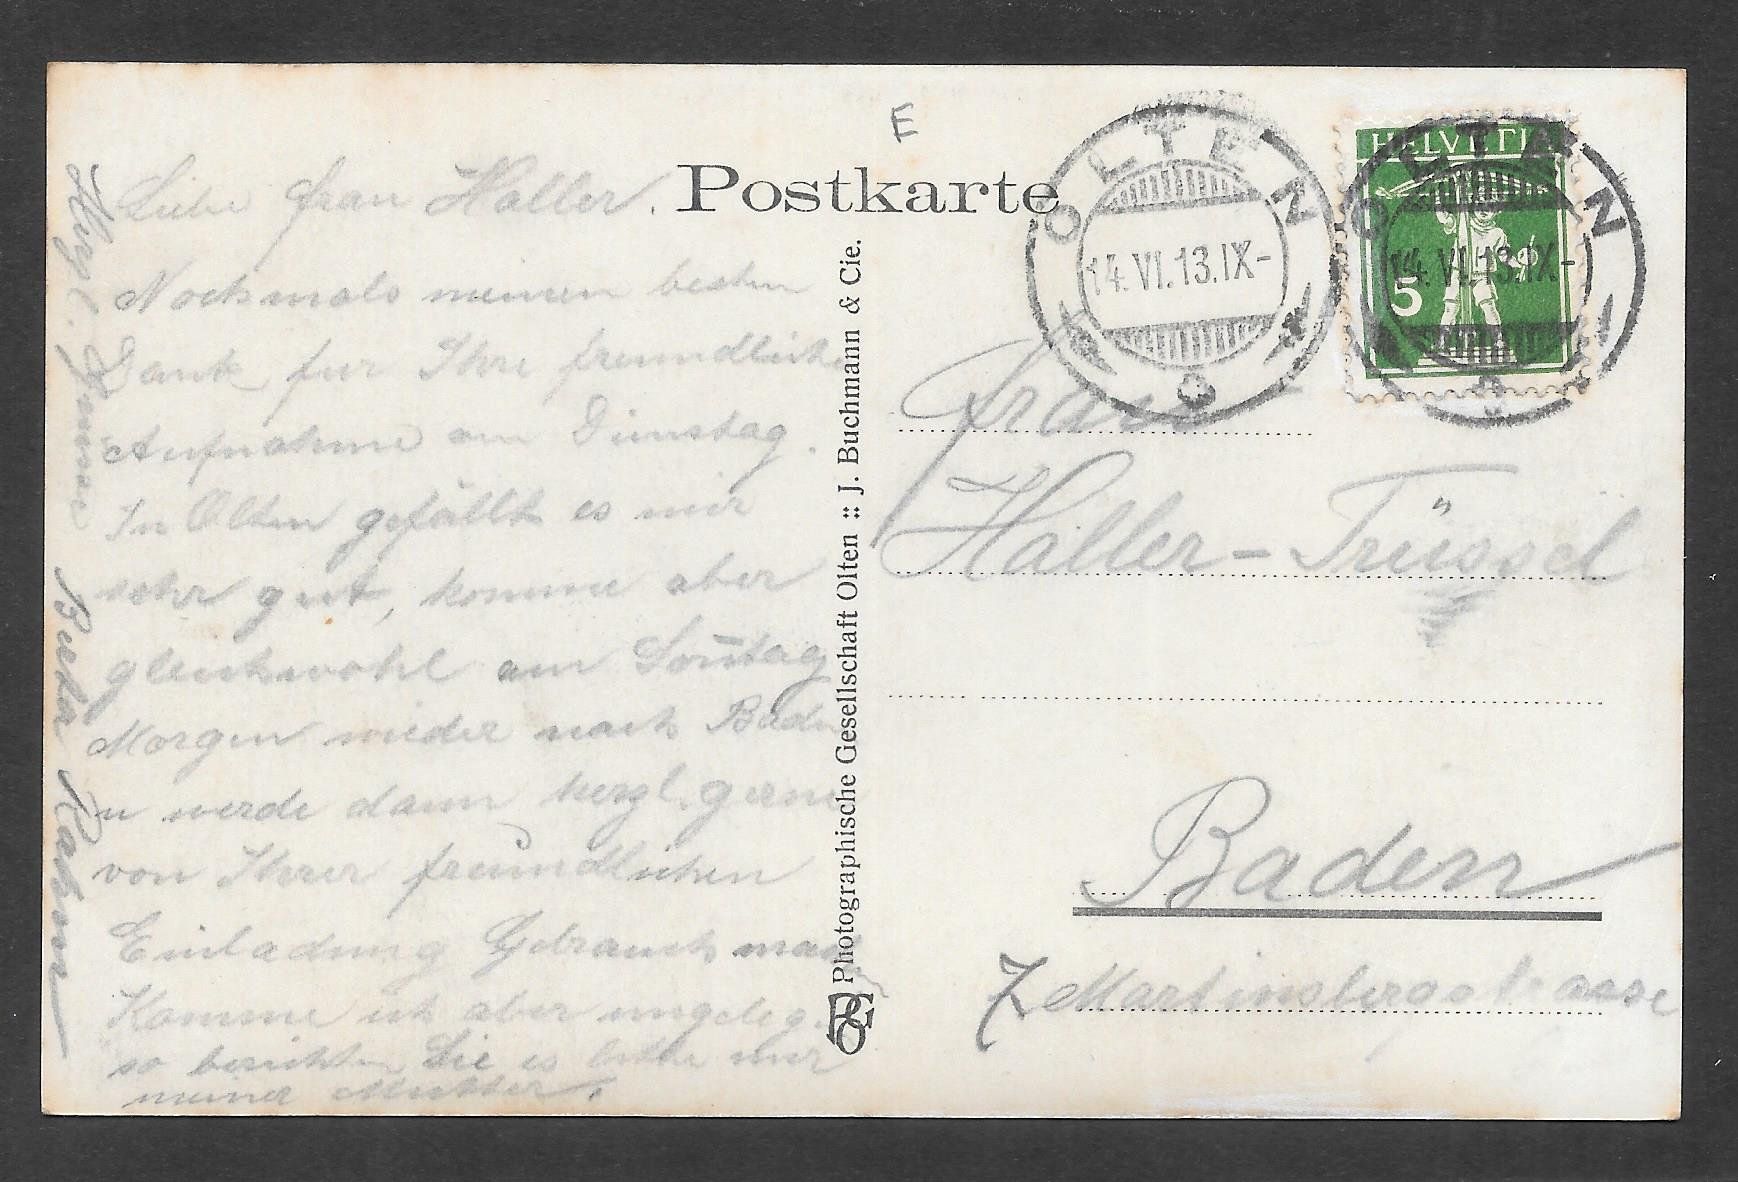 E
Postkarte
OLTEN
14.VI.13.IX-
HELVETIA
5
OLTEN
14.VI.13.IX-
Liebe Frau Haller.
Nochmals meinen besten
Dank für Ihre freundliche
Aufnahme am Dienstag.
In Olten gefällt es mir
sehr gut, komme aber
gleichwohl am Soñtag
Morgen wieder nach Baden
u werde dann herzl. gerne
von Ihrer freundlichen
Einladung Gebrauch mach
Komme ich aber ungeleg.
so berichten Sie es bitte nur
meiner Mutter.
Herzl. Grüsse
Photographische Gesellschaft Olten :: J. Buchmann & Cie.
Frau
Haller-Trüssel
Baden
7 Martinsbergstrasse